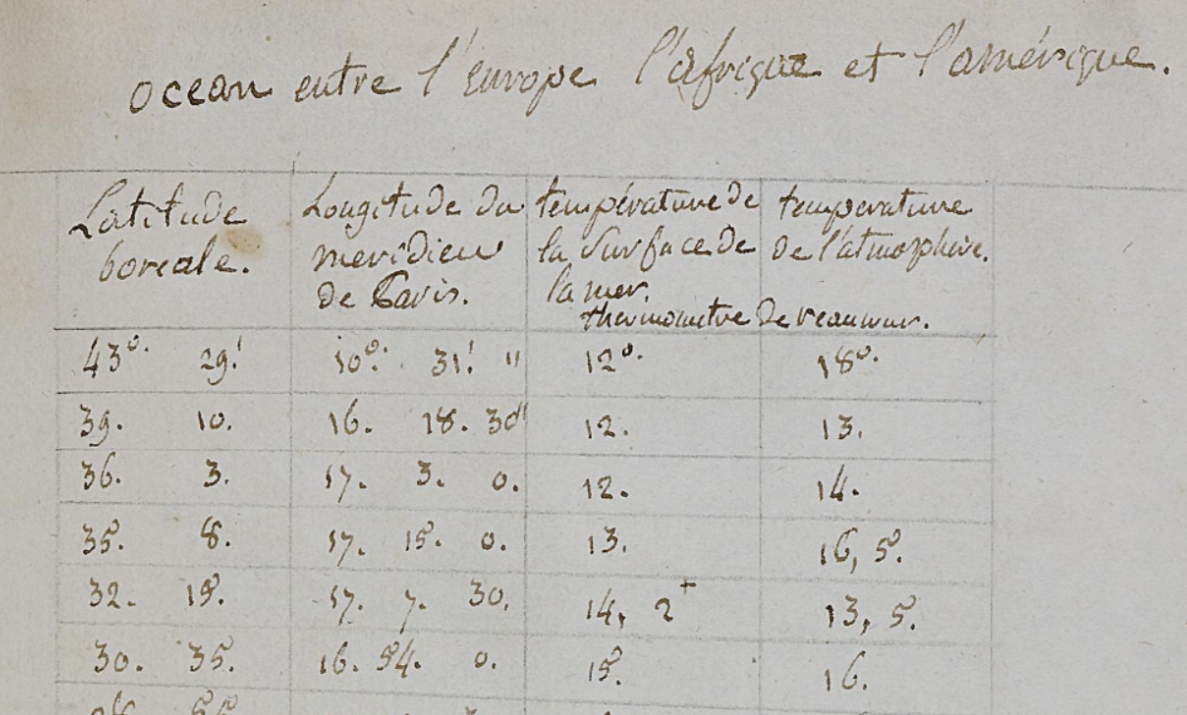 ocean entre l'europe l'afrique et l'amérique.
Latitude boreale. Longitude du meridien de Paris. température de la surface de la mer. temperature de l'atmosphère.
thermometre de reaumur.
43°. 29' 10°. 31' " 12°. 18°.
39. 10. 16. 18. 30" 12. 13.
36. 3. 17. 3. 0. 12. 14.
35. 8. 17. 15. 0. 13. 16, 5.
32. 15. 17. 7. 30. 14, 2+ 13, 5.
30. 35. 16. 54. 0. 15. 16.